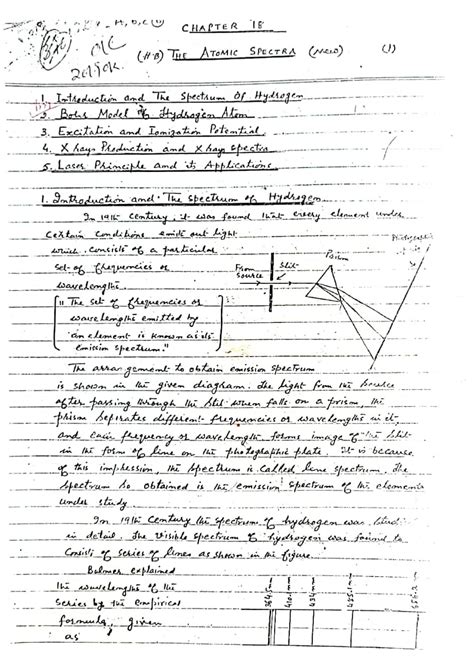 A, b, c
CHAPTER 18
(H.B) THE ATOMIC SPECTRA (New) (1)
1. Introduction and The Spectrum Of Hydrogen
2. Bohrs Model of Hydrogen Atom
3. Excitation and Ionization Potential
4. X hays Production and X hays spectra
5. Laser Principle and its Applications
1. Introduction and The spectrum of Hydrogen
In 19th Century, it was found that every element under
Certain Conditions emits out light
which consists of a particular
set of frequencies or
wavelengths.
From Source
Slit
Prism
" The set of frequencies or
wavelengths emitted by
an element is known as its
emission spectrum."
The arrangement to obtain emission spectrum
is shown in the given diagram. The light from the source
after passing through the slit when falls on a prism, the
prism seperates different frequencies or wavelengths in it,
and each frequency or wavelength forms image of the slit
in the form of line on the photographic plate. It is because
of this impression, the spectrum is called line spectrum. The
spectrum so obtained is the emission spectrum of the element
under study
In 19th Century the spectrum of hydrogen was
in detail. The visible spectrum of hydrogen was found to
Consist of series of lines as shown in the figure.
Balmer explained
the wavelengths of the
series by the empirical
formula, given
as
364.5nm
410.1nm
434nm